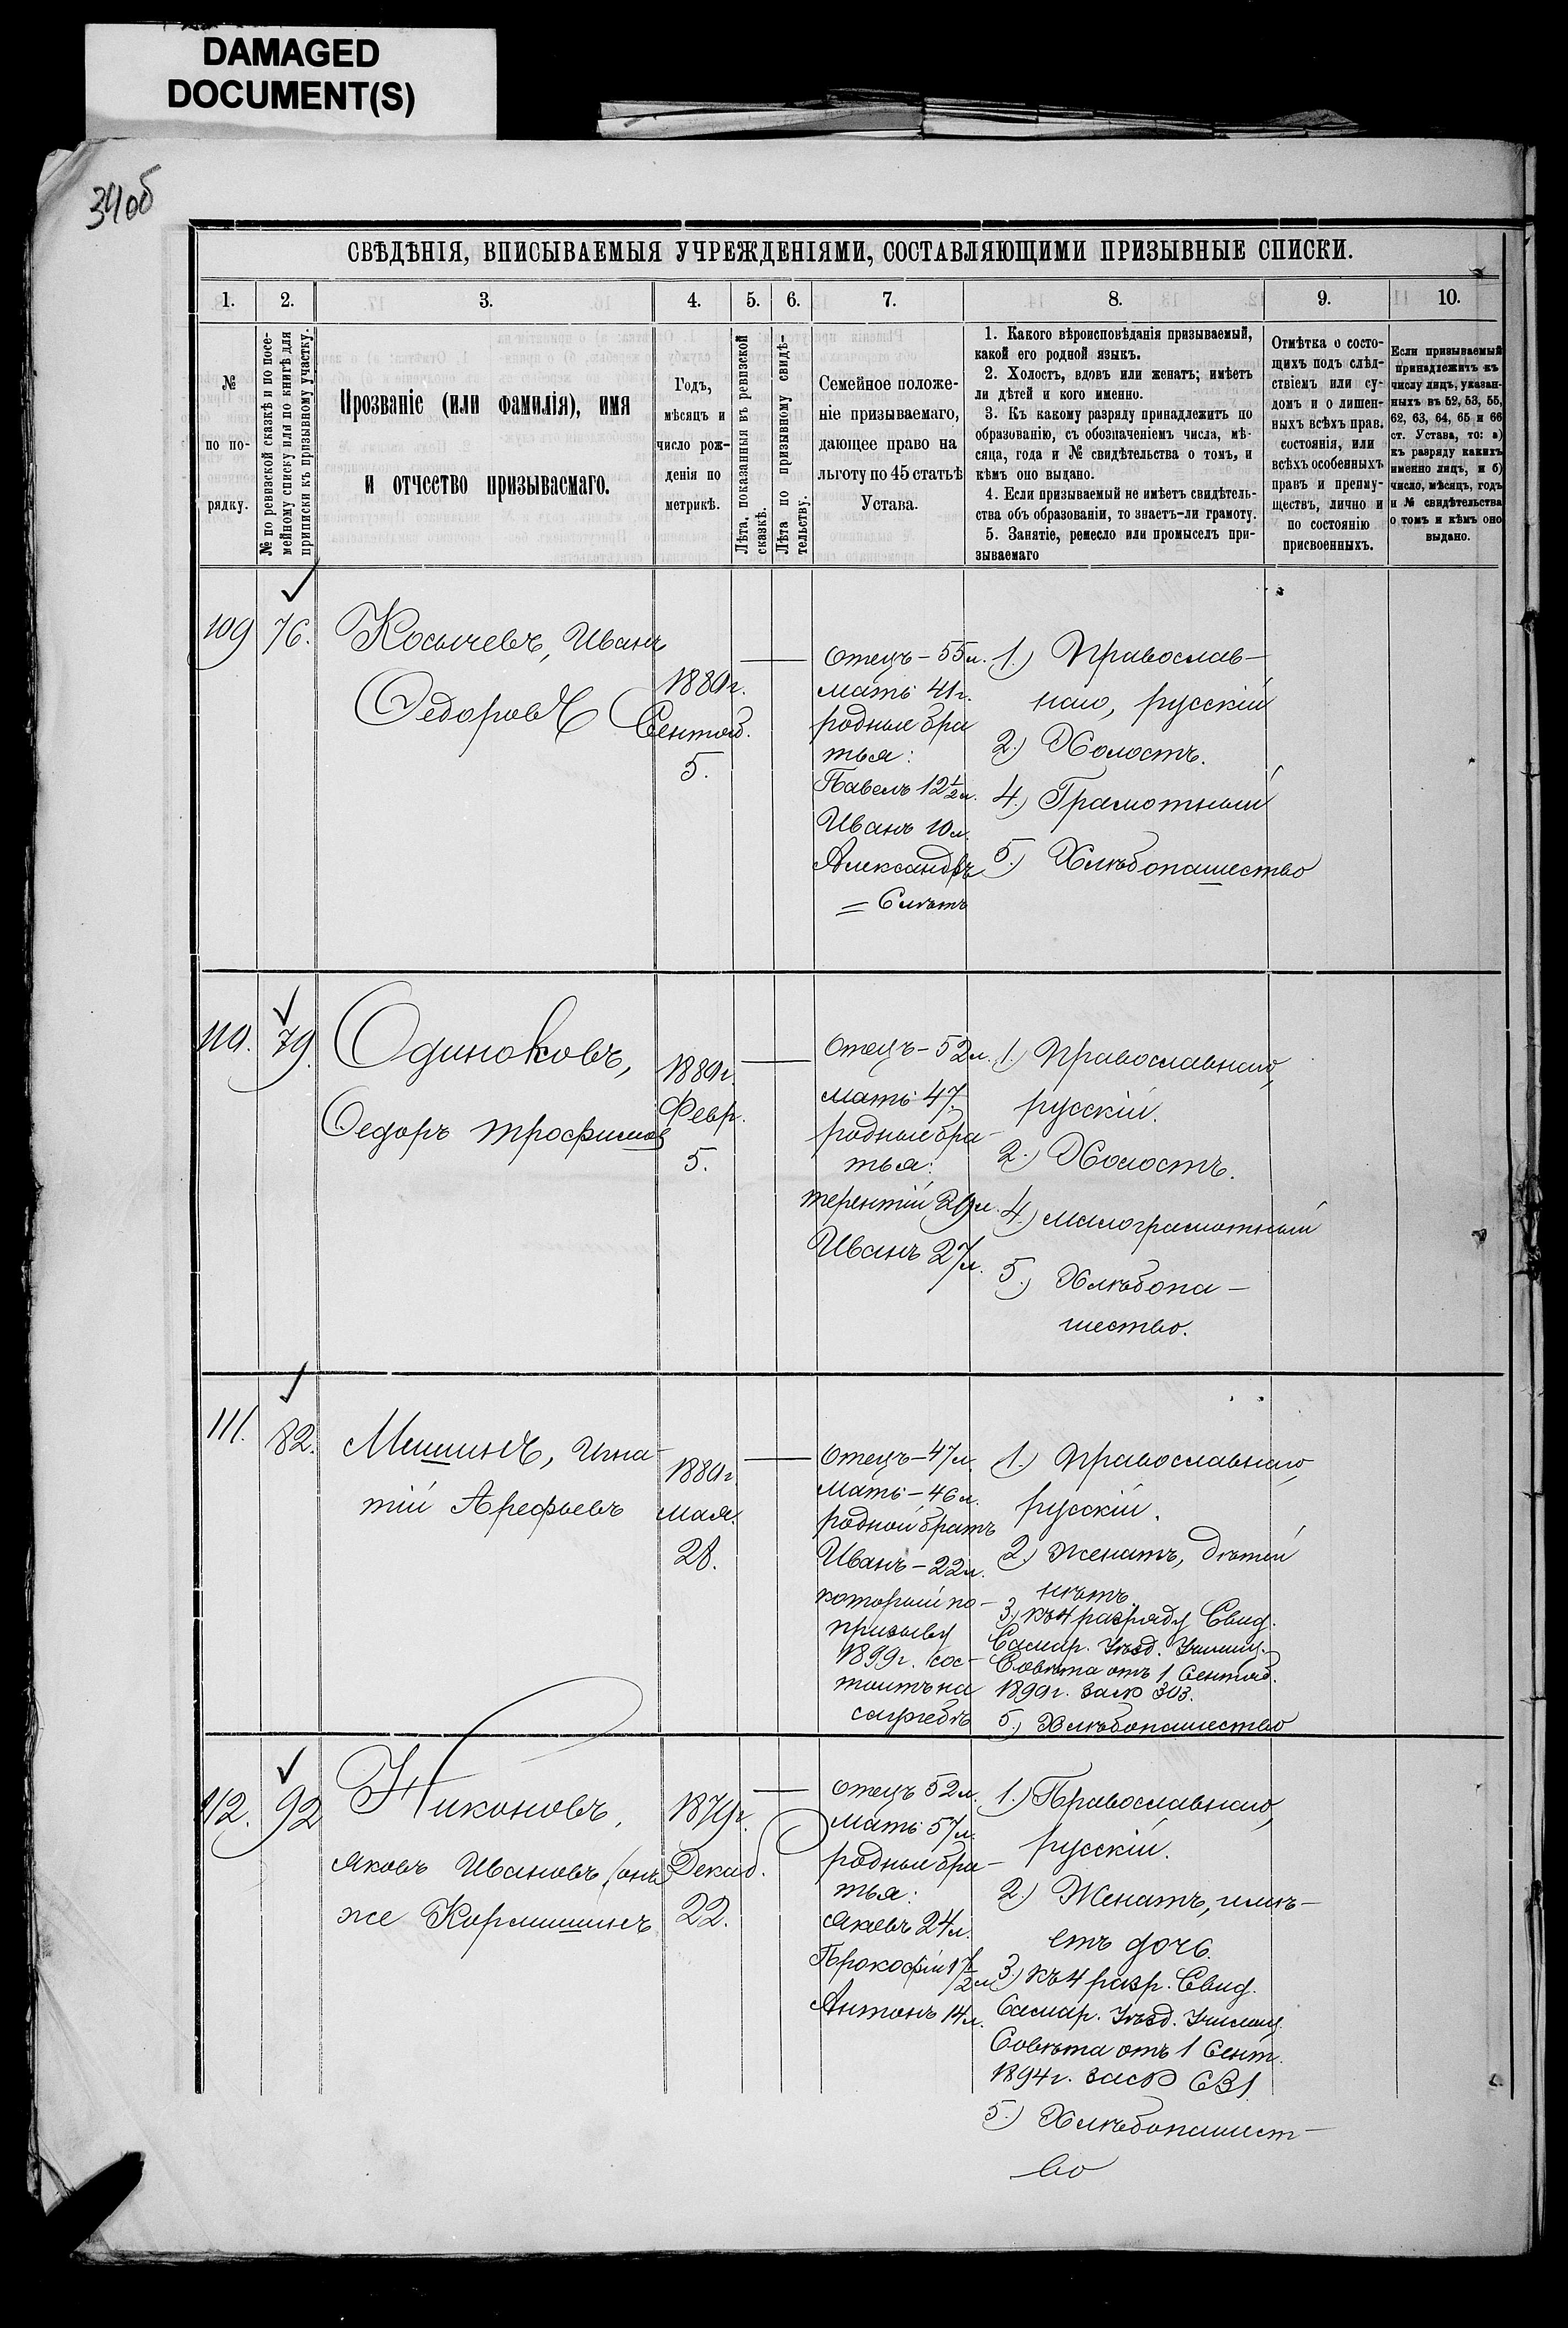 DAMAGED
DOCUMENT(S)
34об
СВѢДѢНІЯ, ВПИСЫВАЕМЫЯ УЧРЕЖДЕНІЯМИ, СОСТАВЛЯЮЩИМИ ПРИЗЫВНЫЕ СПИСКИ.
1. 2. 3. 4. 5. 6. 7. 8. 9. 10.
№
по по-
рядку.
№ по ревизской сказкѣ и по посе-
мейному списку или по книгѣ для
приписки къ призывному участку.
Прозваніе (или фамилія), имя
и отчество призываемаго.
Годъ,
мѣсяцъ и
число рож-
денія по
метрикѣ.
Лѣта, показанныя въ ревизской
сказкѣ.
Лѣта по призывному свидѣ-
тельству.
Семейное положе-
ніе призываемаго,
дающее право на
льготу по 45 статьѣ
Устава.
1. Какого вѣроисповѣданія призываемый,
какой его родной языкъ.
2. Холостъ, вдовъ или женатъ; имѣетъ
ли дѣтей и кого именно.
3. Къ какому разряду принадлежитъ по
образованію, съ обозначеніемъ числа, мѣ-
сяца, года и № свидѣтельства о томъ, и
кѣмъ оно выдано.
4. Если призываемый не имѣетъ свидѣтель-
ства объ образованіи, то знаетъ-ли грамоту.
5. Занятіе, ремесло или промыселъ при-
зываемаго
Отмѣтка о состо-
щихъ подъ слѣд-
ствіемъ или су-
домъ и о лишен-
ныхъ всѣхъ прав.
состоянія, или
всѣхъ особенныхъ
правъ и преиму-
ществъ, лично и
по состоянію
присвоенныхъ.
Если призываемый
принадлежитъ къ
числу лицъ, указан-
ныхъ въ 52, 53, 55,
62, 63, 64, 65 и 66
ст. Устава, то: а)
къ разряду какихъ
именно лицъ, и б)
число, мѣсяцъ, годъ
и № свидѣтельства
о томъ и кѣмъ оно
выдано.
109 76.
Косычевъ, Иванъ
Ѳедоровъ
1880г.
Сентяб.
5.
отецъ - 55л.
мать 41г.
родные бра
тья:
Павелъ 12½л.
Иванъ 10л.
Александръ
= 6 лѣтъ
1.) Православ-
наго, русскій
2.) Холостъ.
4.) Грамотный
5.) Хлѣбопашество
110. 79.
Одиноковъ,
Ѳедоръ Трофимов
1880г.
Февр.
5.
отецъ - 52л.
мать 47.
родные бра-
тья:
Терентій 29л.
Иванъ 27л.
1.) Православнаго,
русскій.
2.) Холостъ.
4.) малограмотный
5.) Хлѣбопа-
шество.
111. 82.
Мишинъ, Игна-
тій Арефьевъ
1880г.
мая.
28.
отецъ - 47л.
мать - 46л.
родной братъ
Иванъ - 22л.
который по-
призыву
1899г. сос-
тоитъ на
службѣ
1.) Православнаго,
русскій.
2.) Женатъ, дѣтей
нѣтъ.
3.) къ 4 разряду Свид.
Самар. Уѣзд. Училищ.
Совѣта отъ 1 Сентяб.
1890г. за № 303.
5.) Хлѣбопашество
112. 92
Никоновъ,
Яковъ Ивановъ, (онъ
же Кормишинъ
1879г.
Декаб.
22.
отецъ 52л.
мать 57л.
родные бра-
тья:
Яковъ 24л.
Прокофій 17½л
Антонъ 14л.
1.) Православнаго,
русскій.
2.) Женатъ, имѣ-
етъ дочь.
3.) къ 4 разр. Свид.
Самар. Уѣзд. Училищ.
Совѣта отъ 1 Сент.
1894г. за №
5.) Хлѣбопашест-
во